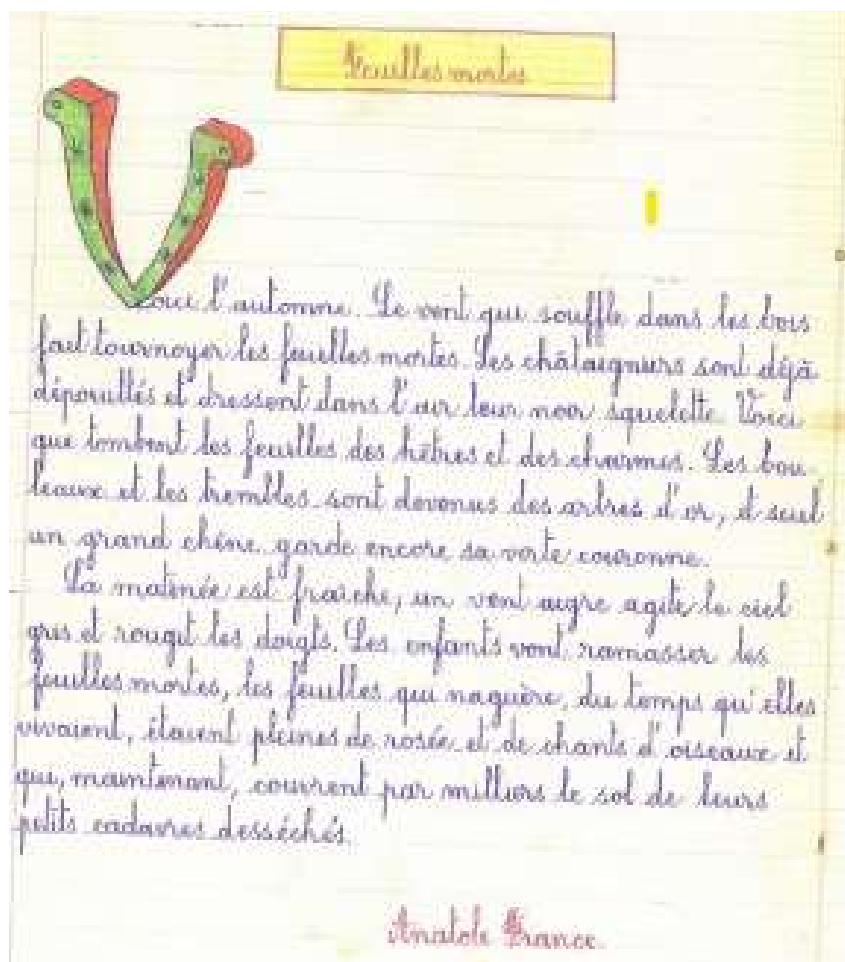 Feuilles mortes
Voici l'automne. Le vent qui souffle dans les bois
fait tournoyer les feuilles mortes. Les châtaigniers sont déjà
dépouillés et dressent dans l'air leur noir squelette. Voici
que tombent les feuilles des hêtres et des charmes. Les bou-
leaux et les trembles sont devenus des arbres d'or, et seul
un grand chêne garde encore sa verte couronne.
La matinée est fraîche, un vent aigre agite le ciel
gris et rougit les doigts. Les enfants vont ramasser les
feuilles mortes, les feuilles qui naguère, du temps qu'elles
vivaient, étaient pleines de rosée et de chants d'oiseaux et
qui, maintenant, couvrent par milliers le sol de leurs
petits cadavres desséchés.
Anatole France.